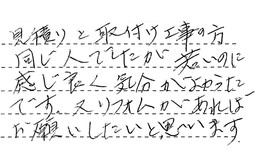 見積りと取付け工事の方
同じ人でしたが若いのに
感じ良く気分がよかった
です。又リフォムがあれば
お願いしたいと思います